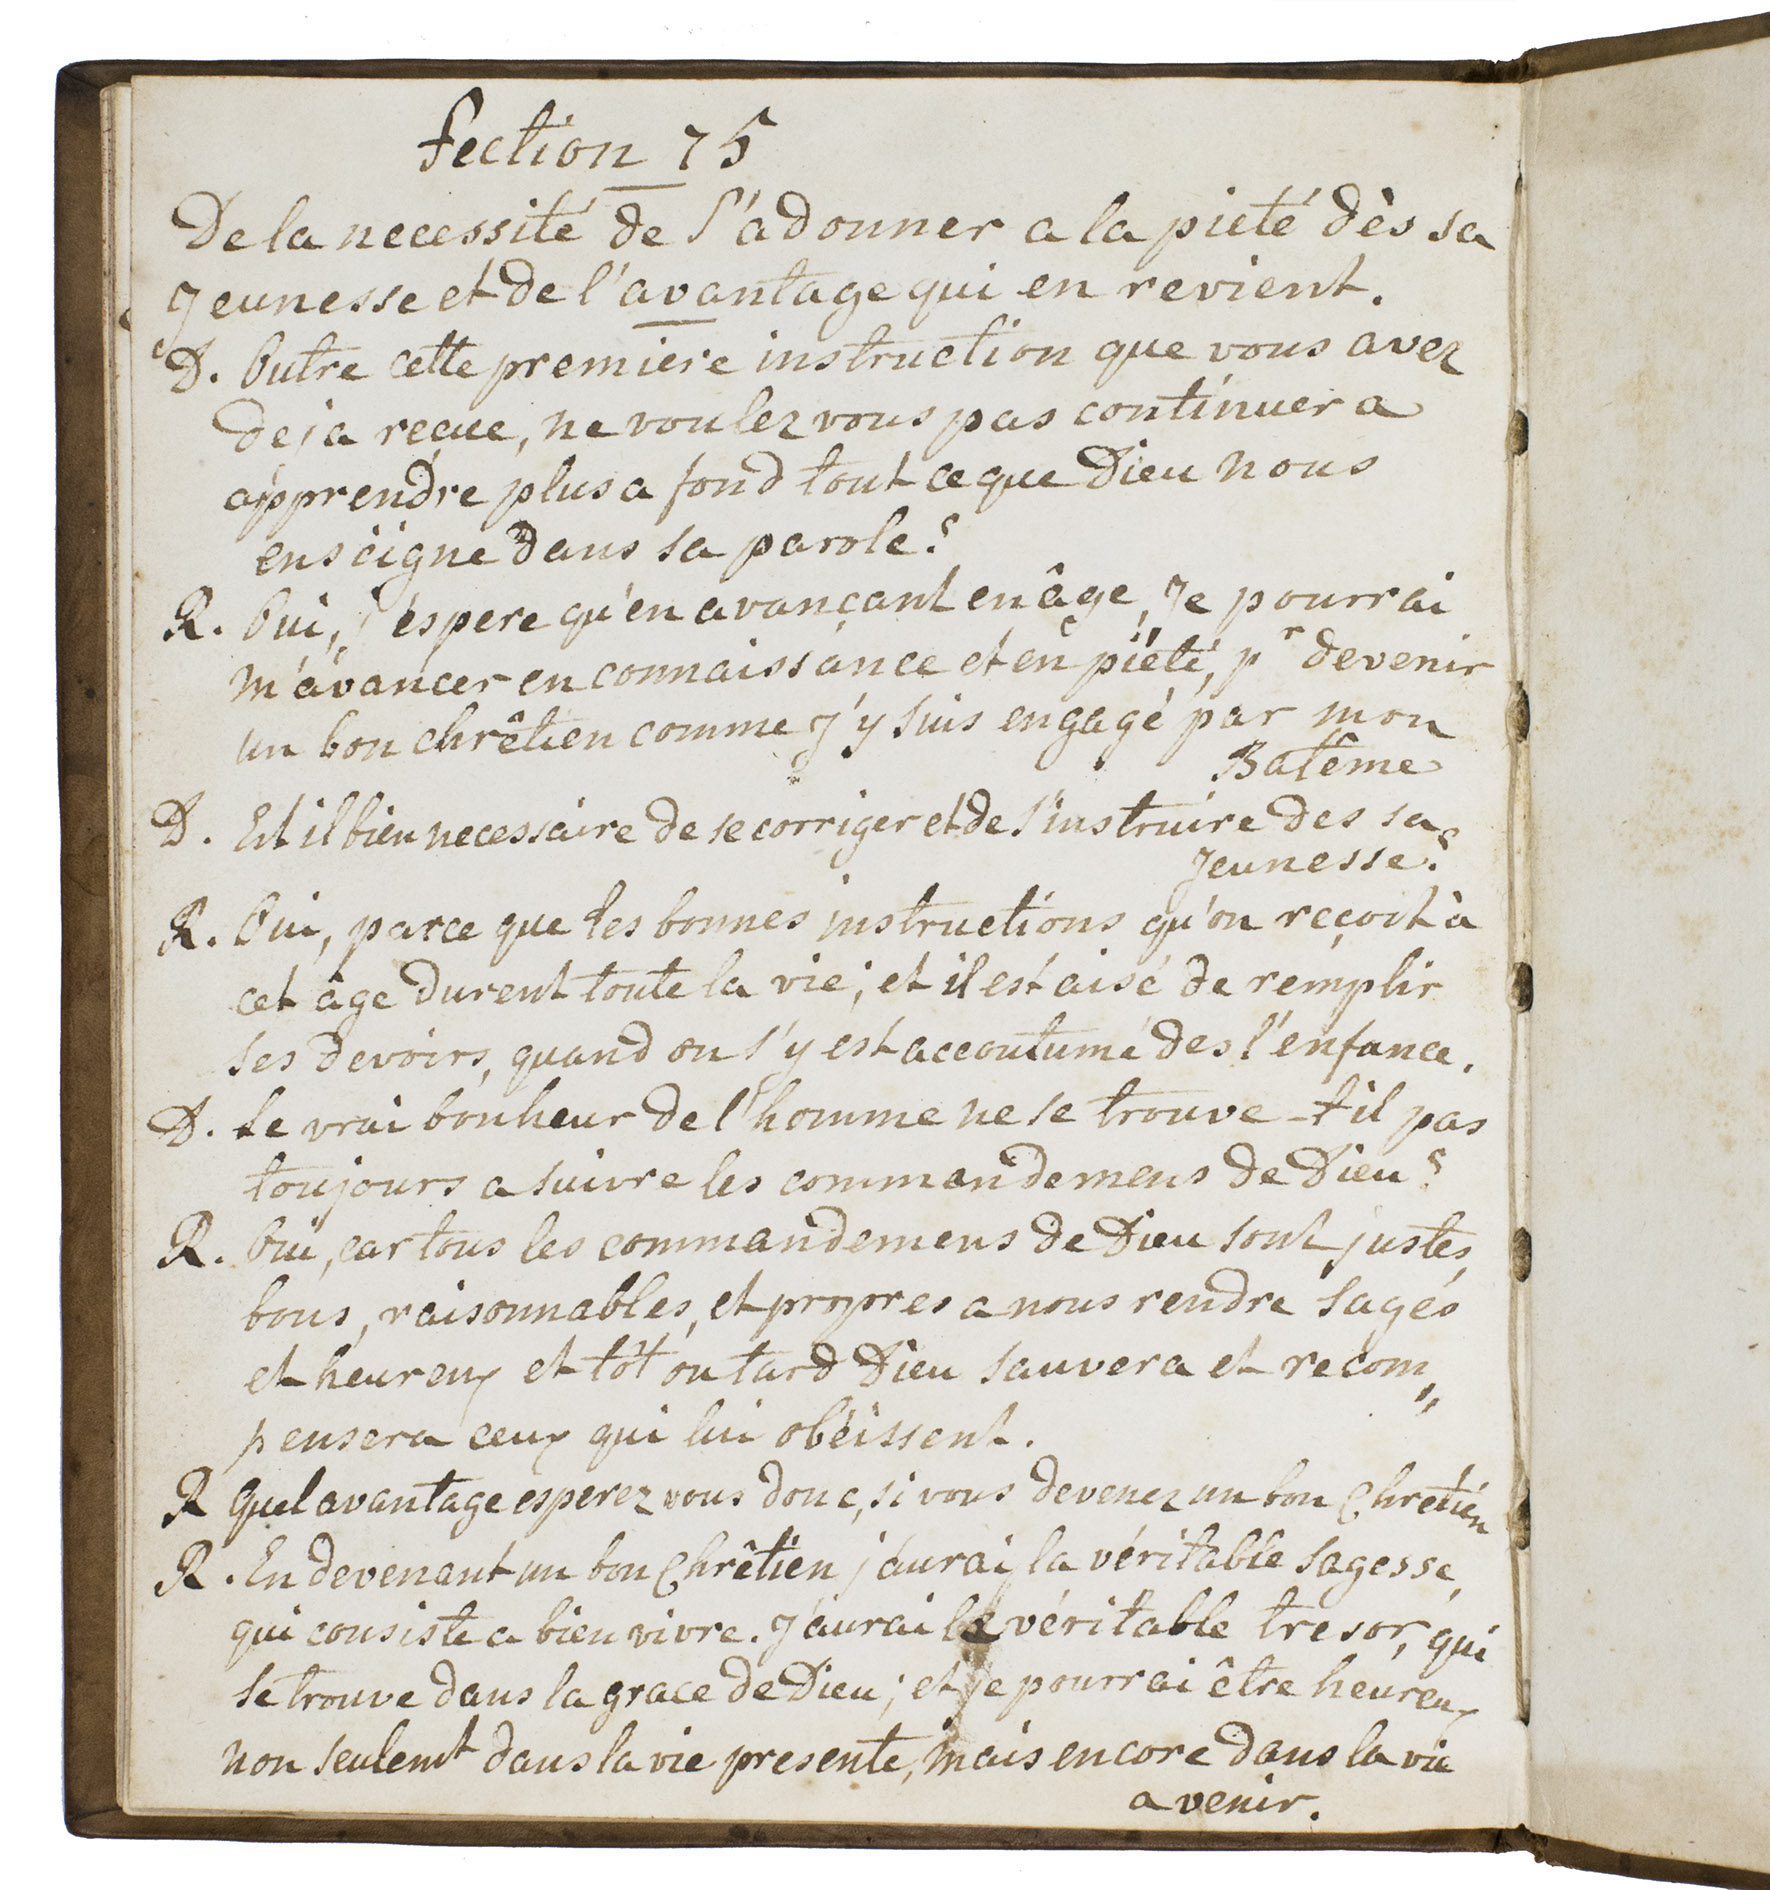 Section 15
De la necessité de s'adonner a la pieté dès sa
Jeunesse et de l'avantage qui en revient.
D. Outre cette premiere instruction que vous avez
deja reçue, ne voulez vous pas continuer a
apprendre plus a fond tout ce que Dieu nous
enseigne dans sa parole?
R. Oui, j'éspere qu'en avançant en âge, Je pourrai
m'avancer en connaissance et en piété, pr devenir
un bon chrêtien comme J'y suis engagé par mon
Batême
D. Est il bien necessaire de se corriger et de s'instruire des sa
Jeunesse?
R. Oui, parce que les bonnes instructions qu'on reçoit à
cet âge durent toute la vie; et il est aisé de remplir
ses devoirs, quand on s'y est accoutumé des l'enfance.
D. Le vrai bonheur de l'homme ne se trouve-t il pas
toujours a suivre les commandemens de Dieu?
R. Oui, car tous les commandemens de Dieu sont justes,
bons, raisonnables, et propres a nous rendre sages
et heureux et tôt ou tard Dieu sauvera et recom„
pensera ceux qui lui obéissent.
R Quel avantage ésperez vous donc, si vous devenez un bon Chretien
R. En devenant un bon Chrêtien j'aurai la véritable sagesse,
qui consiste a bien vivre. J'aurai le véritable tresor, qui
se trouve dans la grace de Dieu; et je pourrai être heureux
non seulemt dans la vie presente, mais encore dans la vie
a venir.